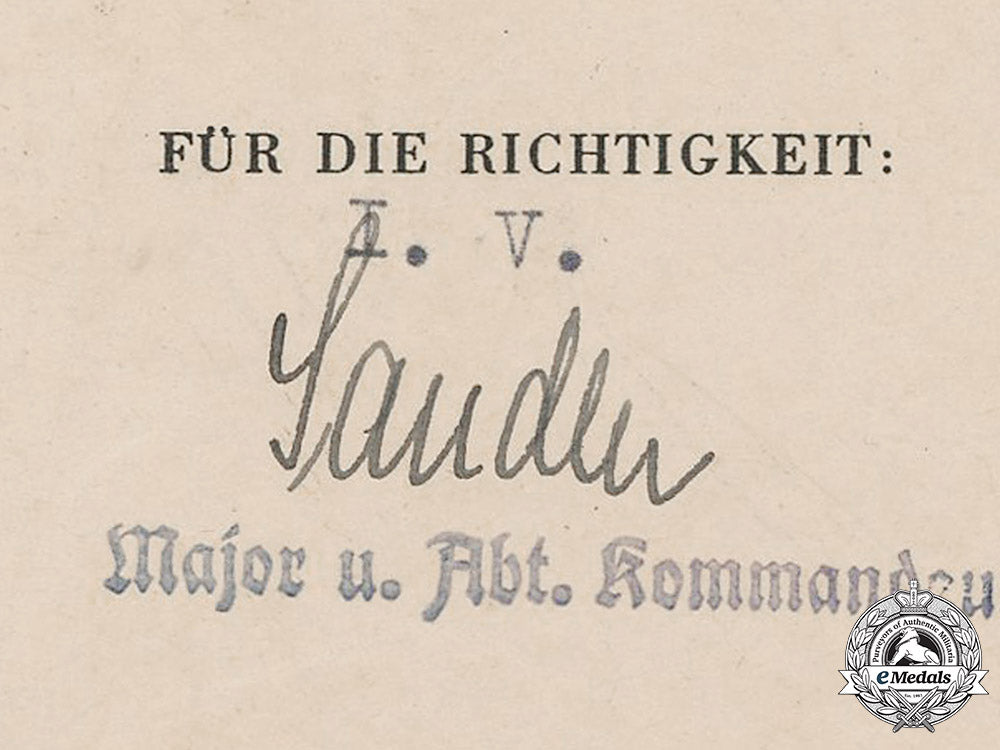 FÜR DIE RICHTIGKEIT:
I. V.
Sander
Major u. Abt. Kommandeu
Purveyors of Authentic Militaria
eMedals